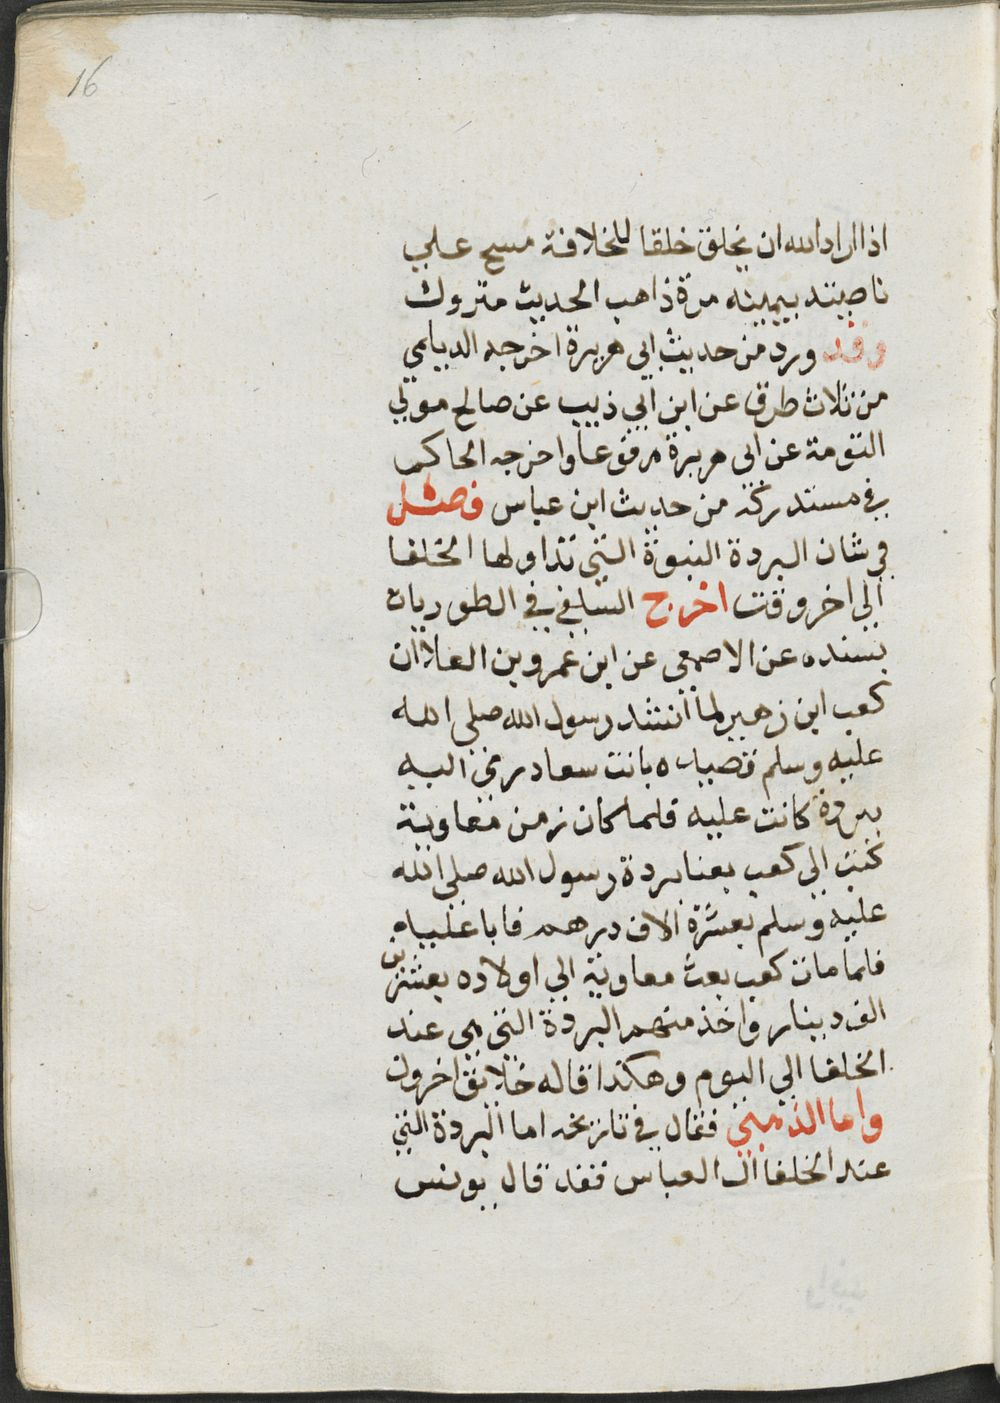 16
اذا اراد الله ان يخلق خلقا للخلافة مسح علي
ناصيته بيمينه مرة ذاهب الحديث متروك
وقد ورد من حديث ابي هريرة اخرجه الديلمي
من ثلاث طرق عن ابن ابي ذيب عن صالح مولي
التومة عن ابى هريرة مرفوعا واخرجه الحاكم
في مستدركه من حديث ابن عباس فصل
في شان البردة النبوة التي تداولها الخلفا
الي اخر وقت اخرج السلفي في الطوريات
بسنده عن الاصمعى عن ابن عمرو بن العلا ان
كعب ابن زهير لما انشد رسول الله صلى الله
عليه وسلم قصيده بانت سعاد رمى اليه
بردة كانت عليه فلما كان زمن معاوية
كتب الي كعب بعنا بردة رسول الله صلي الله
عليه وسلم بعشرة الاف درهم فابا عليه
فلما مات كعب بعث معاوية الي اولاده بعشرين
الف دينار واخذ منهم البردة التي هى عند
الخلفا الي اليوم وهكذا قاله خلايق اخرون
واما الذهبي فقال في تاريخه اما البردة التي
عند الخلفا ال العباس فقد قال يونس